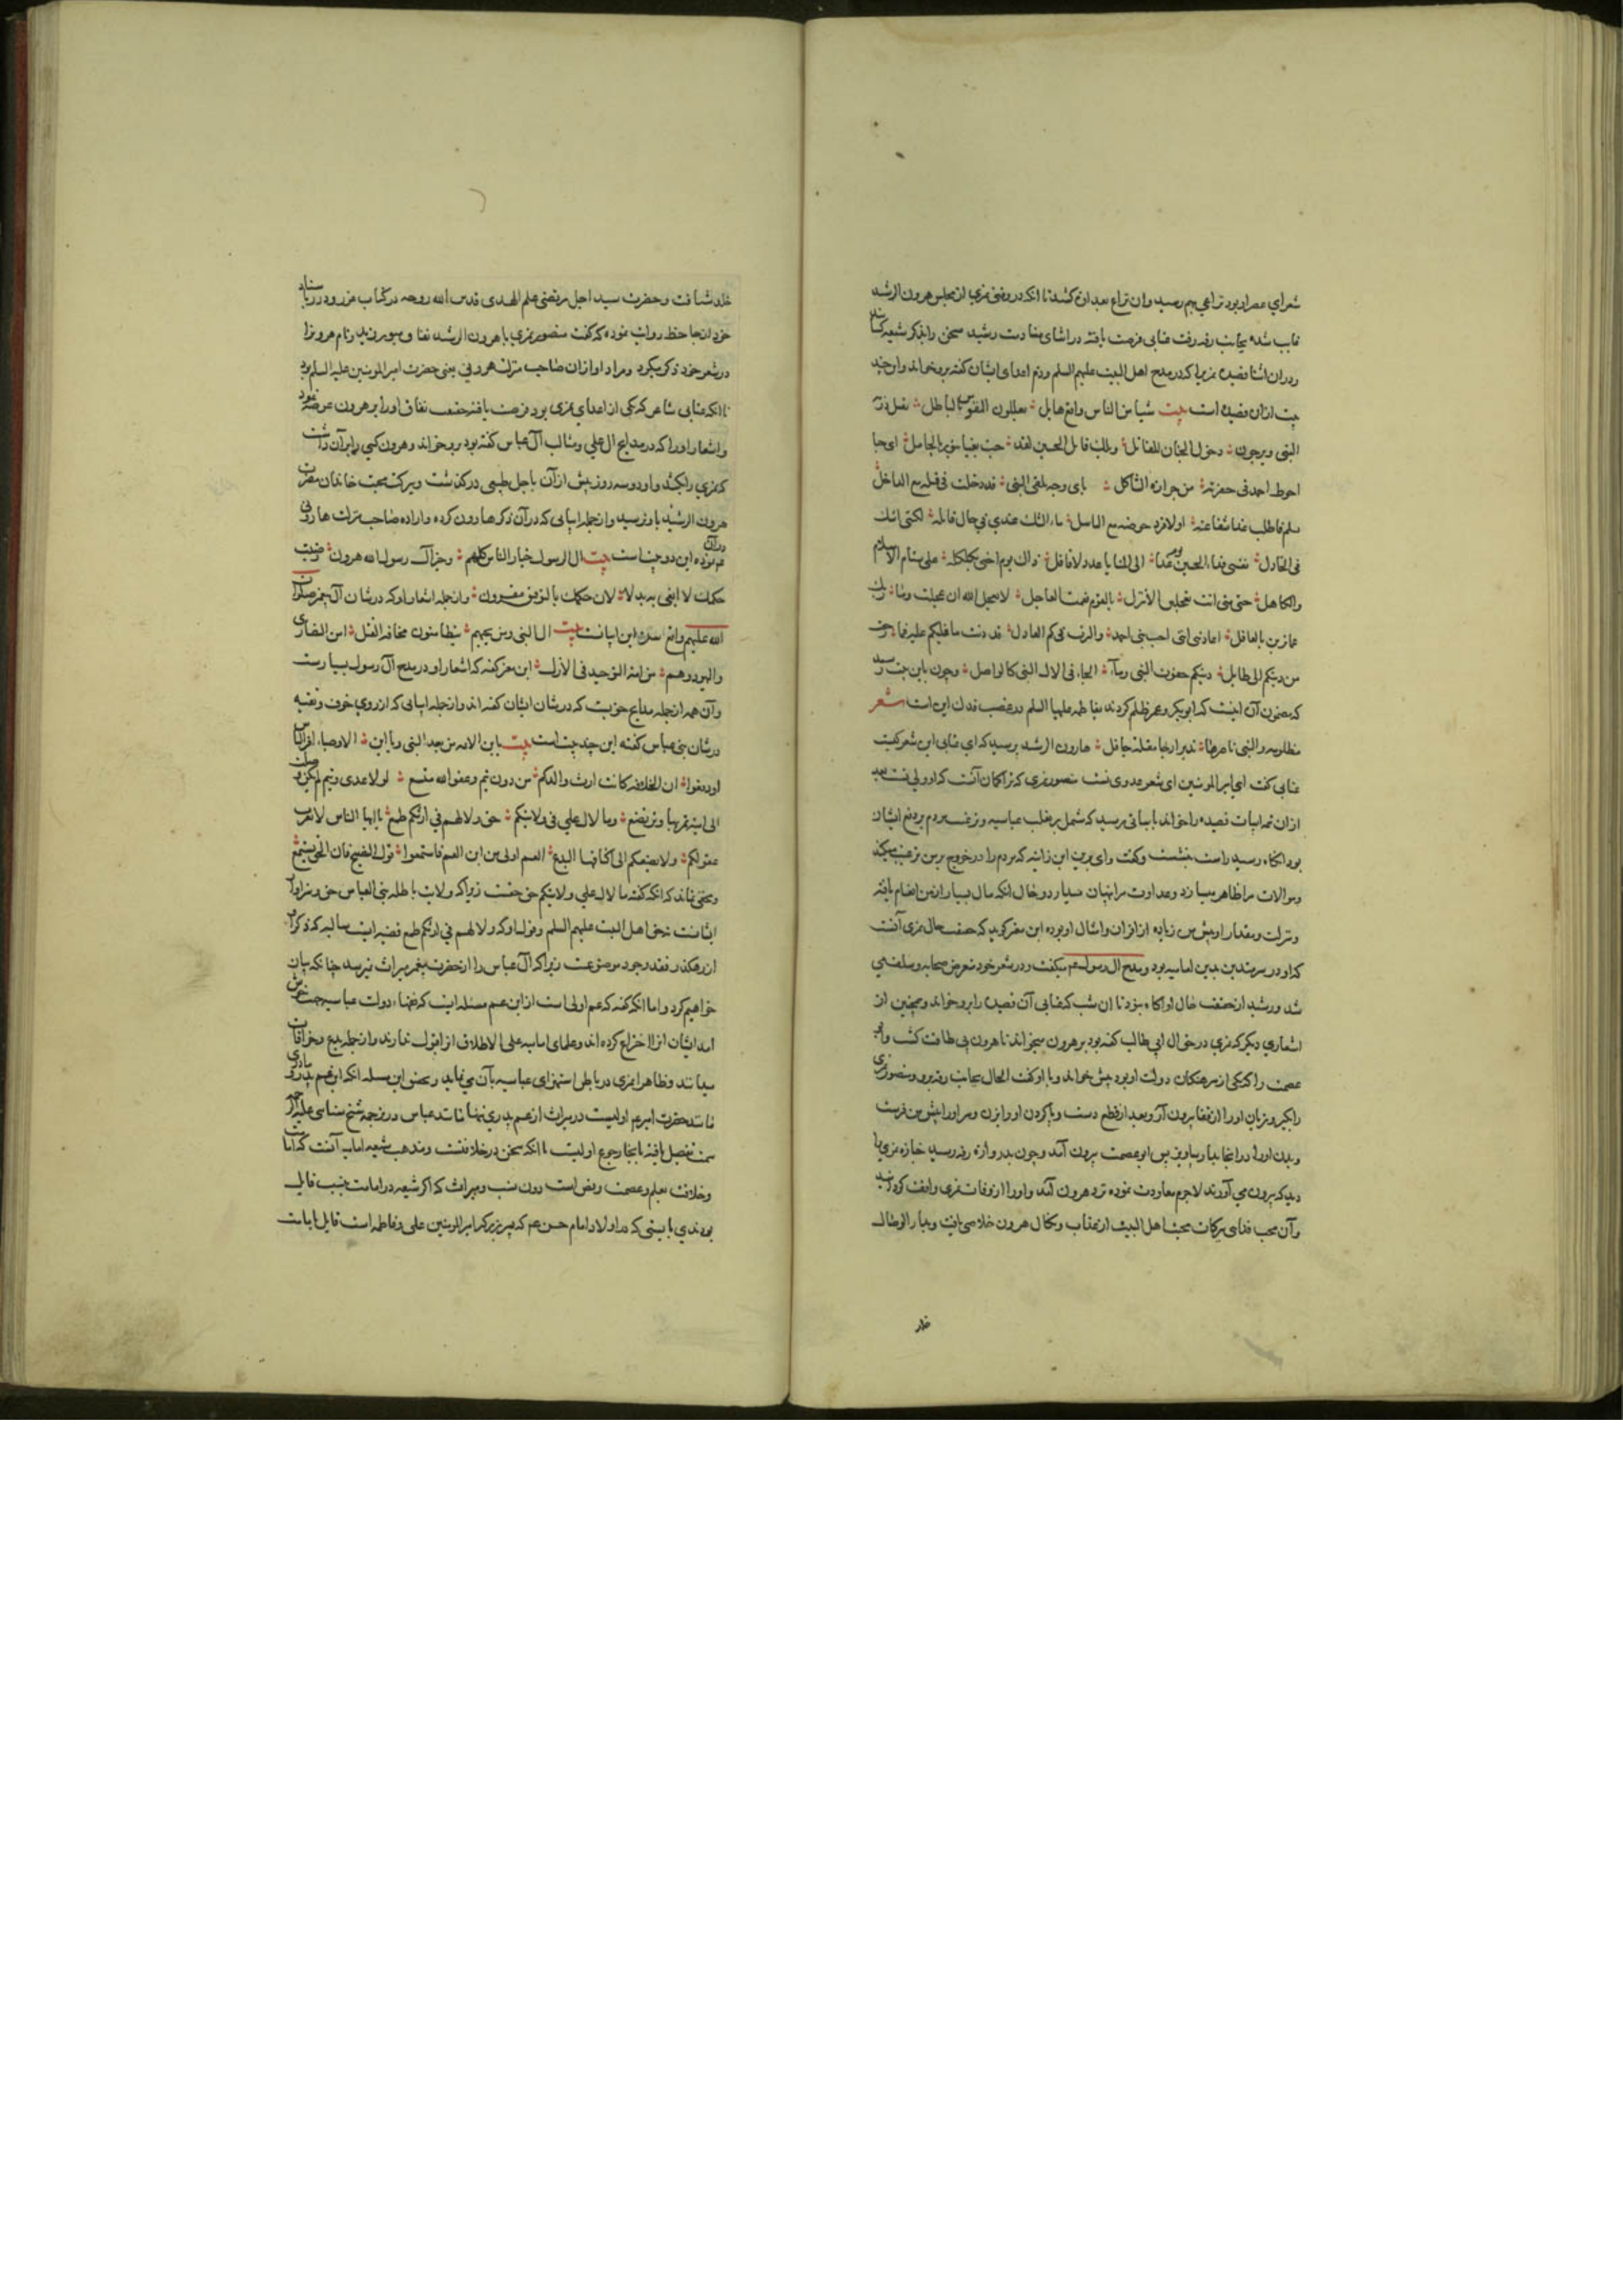 شعرای عصر او بود نزاعی بهم رسید و آن نزاع بعداوت کشید تا آنکه در وقتی نمری از مجلس هرون الرشید
غایب شده بجانب رقه رفت عتابی فرصت یافته در اثنای منادمت رشید سخن را بذکر شیعه کشانید
و در آن اثنا قصیده نمری را که در مدح اهل البیت علیهم السلم و ذم اعدای ایشان گفته برو خواند و این چند
بیت ازان قصیده است بیت شاء من الناس راتع هامل یعللون النفوس بالباطل تقتل ذریة
النبی و یرجون دخول الجنان للقاتل
ای حبا
احوط احمد فی حفرته من حرارة الثاکل بای وجه تلقی النبی قد دخلت فی قتله مع الداخل
هلم فاطلب غدا شفاعته اولا فرد حوضه مع الناهل ما الشک عندی فی حال قاتله لکنی اشک
فی الخاذل نفسی فداء الحسین یوم غدا الی المنایا غدو لا قافل ذاک یوم اخنی بکلکله علی سنام الاسلام
والکاهل حتی متی انت تعجلین الا تنزل بالقوم نقمة العاجل لا یعجل الله ان عجلت وما ربک
عما ترین بالغافل اعاذنی انی احب بنی احمد والترب فی فم العاذل قد دنت ما دینکم علیه فما رجعت
من دینکم الی طایل دینکم جفوة النبی وما الجافی لآل النبی کالواصل و چون باین بیت رسید
که مضمون آن اینست که ابوبکر و عمر ظلم کردند بفاطمه علیها السلم در غصب فدک این است شعر
مظلومة والنبی ناصرها تدیر ارجاء مقلة حافل هارون الرشید پرسید که ای عتابی این شعر کیست
عتابی گفت ای امیر المومنین این شعر عدوی تست منصور نمری که ترا گمان آنست که او ولی تست بعد
ازان تمه ابیات قصیده را خواند تا بابیاتی رسید که مشتمل بر تغلب عباسیه و ترغیب مردم بر دفع ایشان
بود آنگاه رشید راست بنشست و گفت وای برین ابن زانیه که مردم را در خروج بر من ترغیب میکند
و موالات مرا ظاهر میسازد و عداوت مرا پنهان میدارد و حال آنکه مال بسیار از من انعام یافته
و منزلت و مقدار او پیش من زیاده از اقران و امثال او بوده این مقرر گوید که حقیقت حال نمری آنست
که او در سر متدین بدین امامیه بود و مدح آل رسول عم میگفت و در شعر خود تعریض صحابه و سلف می
شد و رشید از حقیقت حال او آگاه نبود تا آن شب که عتابی آن قصیده را برو خواند و همچنین از
اشعاری دیگر که نمری در حق آل ابی طالب گفته بود بر هرون میخواند تا هرون بی طاقت گشت و ابو
عصمت را که یکی از سرهنگان دولت او بود پیش خواند و با او گفت الحال بجانب رقه برو و منصور نمری
را بگیر و زبان او را از قفا بیرون آر و بعد از قطع دست و پا گردن او را بزن و سر او را پیش من فرست
و بدن او را در آنجا بیاویز پس ابو عصمت بیرون آمد و چون بدروازه رقه رسید جنازه نمری را
دید که بیرون می آورند لاجرم معاودت نموده نزد هرون آمد و او را از وفات نمری واقف گردانید
و آن محب فدایی ببرکات محبت اهل البیت از عذاب و نکال هرون خلاصی یافت و بدار الوصال
خلد شتافت و حضرت سید اجل مرتضی علم الهدی قدس الله روحه در کتاب غرر و درر باسناد
خود از جاحظ روایت نموده که گفت منصور نمری با هرون الرشید نفاق میورزید و نام هرون را
در شعر خود ذکر میکرد و مراد او ازان صاحب منزلت هرونی یعنی حضرت امیر المومنین علیه السلم بود
تا آنکه عتابی شاعر که یکی از اعدای نمری بود فرصت یافته حقیقت نفاق او را بر هرون عرضه نمود
و اشعار او را که در مدایح آل علی و مثالب آل عباس گفته بود برو خواند و هرون کسی را بر آن داشت
که نمری را بکشد و او دو سه روز پیش ازان باجل طبیعی درگذشت و ببرکت محبت خاندان مضرت
هرون الرشید باو نرسید و از جمله ابیاتی که در آن ذکر هارون کرده و اراده صاحب منزلت هارونی
در آن نموده این دو بیت است بیت آل الرسول خیار الناس کلهم و خیر آل رسول الله هرون رضیت
حکمک لا ابغی به بدلا لان حکمک بالتوفیق مقرون و از جمله اشعار او که در شان آل پیغمبر صلوات
الله علیهم واقع شده این ابیاتست بیت آل النبی ومن یحبهم یتطامنون مخافة القتل امن النصاری
والیهود وهم من امة التوحید فی الازل این مقرر گفته که اشعار او در مدح آل رسول بسیارست
و آن همه از جمله مدایح حق نیست که در شان ایشان گفته اند و از جمله ابیاتی که از روی خوف و تقیه
در شان بنی عباس گفته این چند بیت است بیت یا ابن الائمة من بعد النبی ویا ابن الاوصیاء اقر الناس
او دفعوا ان الخلافة کانت ارث والدکم من دون تیم وعفو الله متسع لولا عدی وتیم لم تکن وصلت
الی امیة تمریها وترتضع وما لآل علی فی ولایتکم حق وما لهم فی ارثکم طمع یا ایها الناس لا تعزب
عقولکم ولا تضفکم الی اکنافها البدع العم اولی من ابن العم فاستمعوا قول النصیح فان الحق یستمع
و مخفی نماند که آنکه گفته ما لآل علی فی ولایتکم حق حقست زیرا که ولایت باطله بنی العباس حق و سزاوار
ایشانست نه حق اهل البیت علیهم السلم و قول او که ولا لهم فی ارثکم طمع قضیه ایست سالبه که ذکر آن
از رهگذر فقد وجود موضوعست زیرا که آل عباس را از حضرت پیغمبر میراث نمیرسد چنانکه بیان
خواهیم کرد و اما آنکه گفته که عم اولی است از ابن عم مسئله ایست که فقهاء دولت عباسیه جهت خوش
آمد ایشان آنرا اختراع کرده اند و علمای امامیه علی الاطلاق از قبول ندارند و از جمله بدع و خرافات
میدانند و ظاهرا نمری در باطن استهزای عباسیه بآن می نماید و تحقیق این مسئله آنکه ابن عم پدری و مادری
مانند حضرت امیر عم اولیست در میراث از عم پدری تنها مانند عباس و در ترجمه شیخ سنایی علیه الرحمه
سمت تفصیل یافته بآنجا رجوع اولیست با آنکه سخن در خلافتست و مذهب شیعه امامیه آنست که امامت
و خلافت بعلم و عصمت و نص است دون نسب و میراث که اگر شیعه در امامت بنسب قایل
بودندی بایستی که در اولاد امام حسن عم که پسر بزرگتر امیر المومنین علی و فاطمه است قایل بامامت